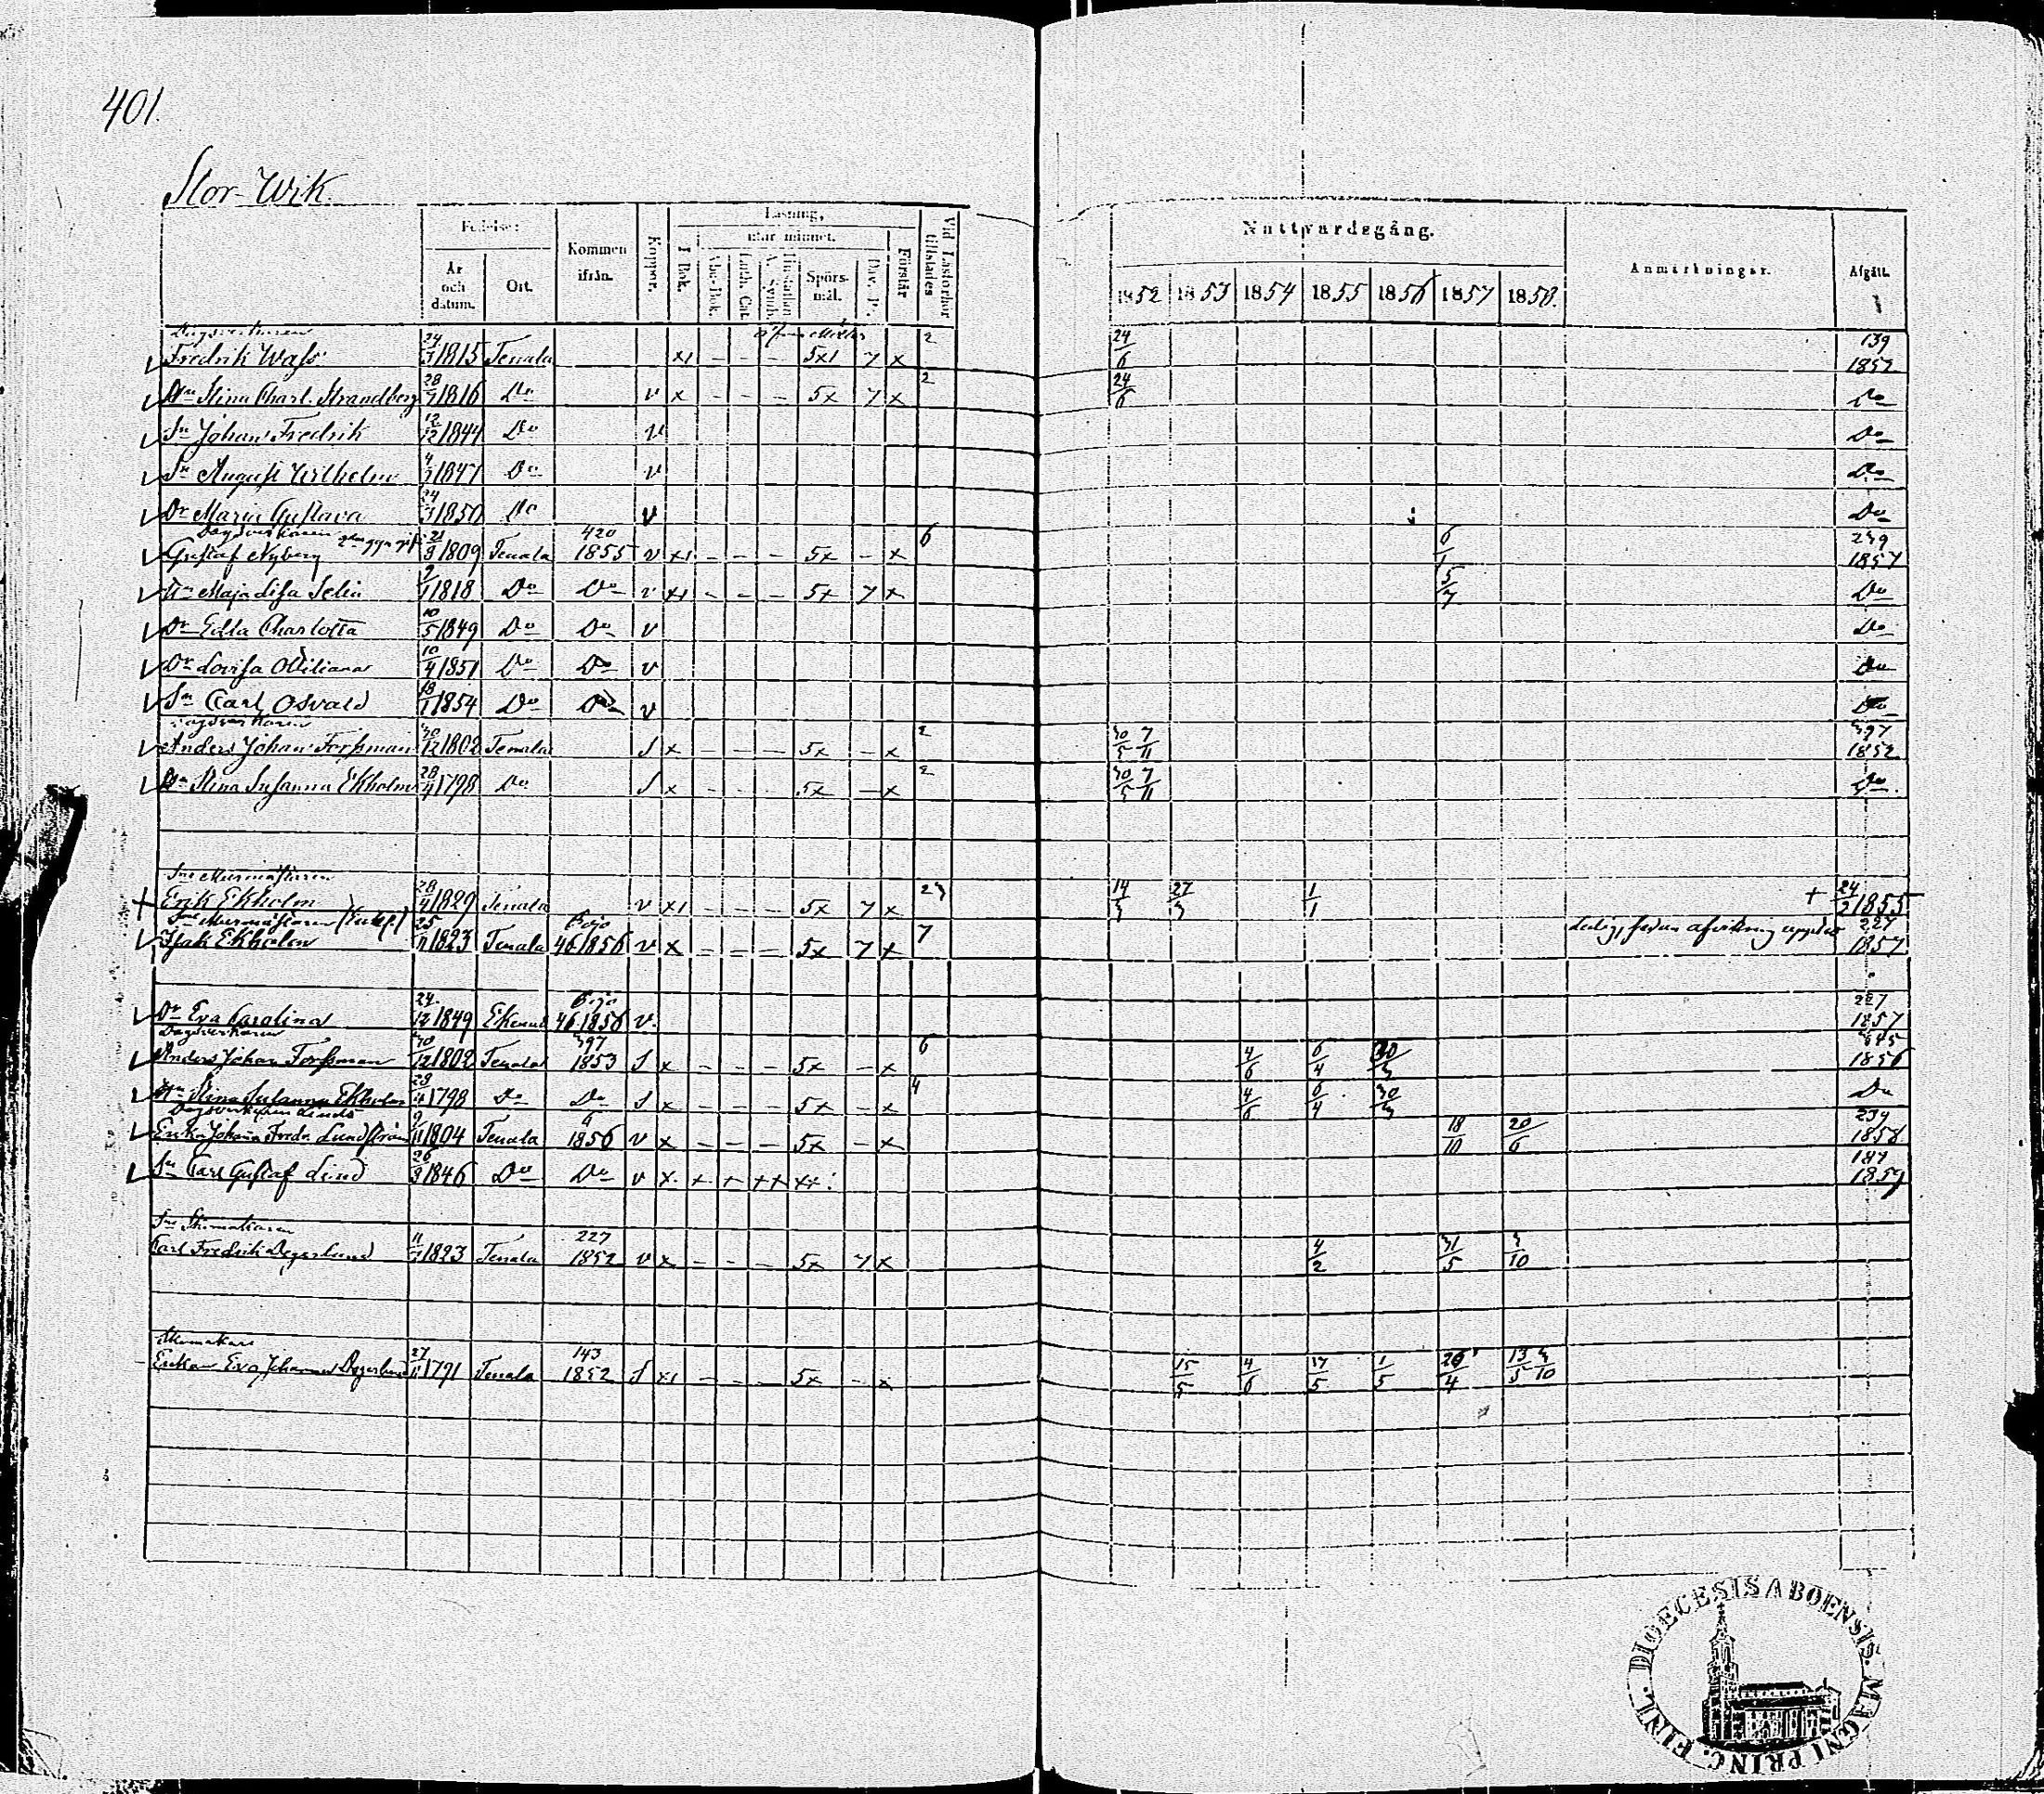 401.
Stor-Wik.
Födelse:
Kommen ifrån.
Koppor.
Läsning,
utur minnet.
I Bok.
Abc-Bok.
Luth. Cat.
Spörsmål.
Dav. Ps.
Förstår
Vid Läsförhör tillstädes
År och datum.
Ort.
Nattvardsgång.
Anmärkningar.
Afgått.
1852 1853 1854 1855 1856 1857 1858
Dagsverkaren
Fredrik Wass 24/ 1815 Tenala x1 - - - 5x1 7 x 2 24/6 139 1852
Hu Stina Charl. Strandberg 28/7 1816 Do v x - - - 5x 7 x 2 24/6 Do
Sn Johan Fredrik 12/12 1844 Do v Do
Sn August Wilhelm 4/ 1847 Do v Do
Dr Maria Gustava 24/ 1850 Do v Do
Dagsverkaren
Gustaf Nyberg 21/8 1809 Tenala 420 1855 v x1 - - - 5x - x 6 6/1 239 1857
Hu Maja Lisa Selin 9/1 1818 Do Do v x1 - - - 5x 7 x 5/7 Do
Dr Edla Charlotta 10/5 1849 Do Do v Do
Dr Lovisa 10/4 1851 Do Do v Do
Sn Carl Osvald 18/1 1854 Do Do v Do
Dagsverkaren
Anders Johan Forssman 30/12 1802 Tenala S x - - - 5x - x 2 30/5 7/11 397 1852
Hu Stina Susanna Ekholm 28/4 1798 Do S x - - - 5x - x 2 30/5 7/11 Do
Murmästaren
Erik Ekholm 28/4 1829 Tenala v x1 - - - 5x 7 x 23 14/3 27/3 1/1 + 24/2 1855
Murmästaren (Enkl.)
Isak Ekholm 25/11 1823 Tenala Bojo 46 1856 v x - - - 5x 7 x 7 ledig, 227 1857
Dr Eva Carolina 24/12 1849 Ekenäs Bojo 46 1856 v 227 1857
Dagsverkaren
Anders Johan Forssman 30/12 1802 Tenala 397 1853 S x - - - 5x - x 6 4/6 6/4 30/3 1856
Hu Stina Susanna Ekholm 28/4 1798 Do Do S x - - - 5x - x 4 4/6 6/4 30/3 Do
Dagsverkaren Linds
Enka Johanna Fredr. Lundström 9/11 1804 Tenala 1856 v x - - - 5x - x 18/10 20/6 239 1858
Sn Carl Gustaf Lind 26/3 1846 Do Do v x + + ++ 1859
Skomakaren
Carl Fredrik Degerlund 11/ 1823 Tenala 227 1852 v x - - - 5x 7 x 4/2 31/5 3/10
Skomakare
Enkan Eva Johanna Degerlund 27/11 1791 Tenala 143 1852 S x1 - - - 5x - x 15/5 4/6 17/5 1/5 26/4 13/5 3/10
DIOECESIS ABOENSIS. MAGNI PRINC. FINL.